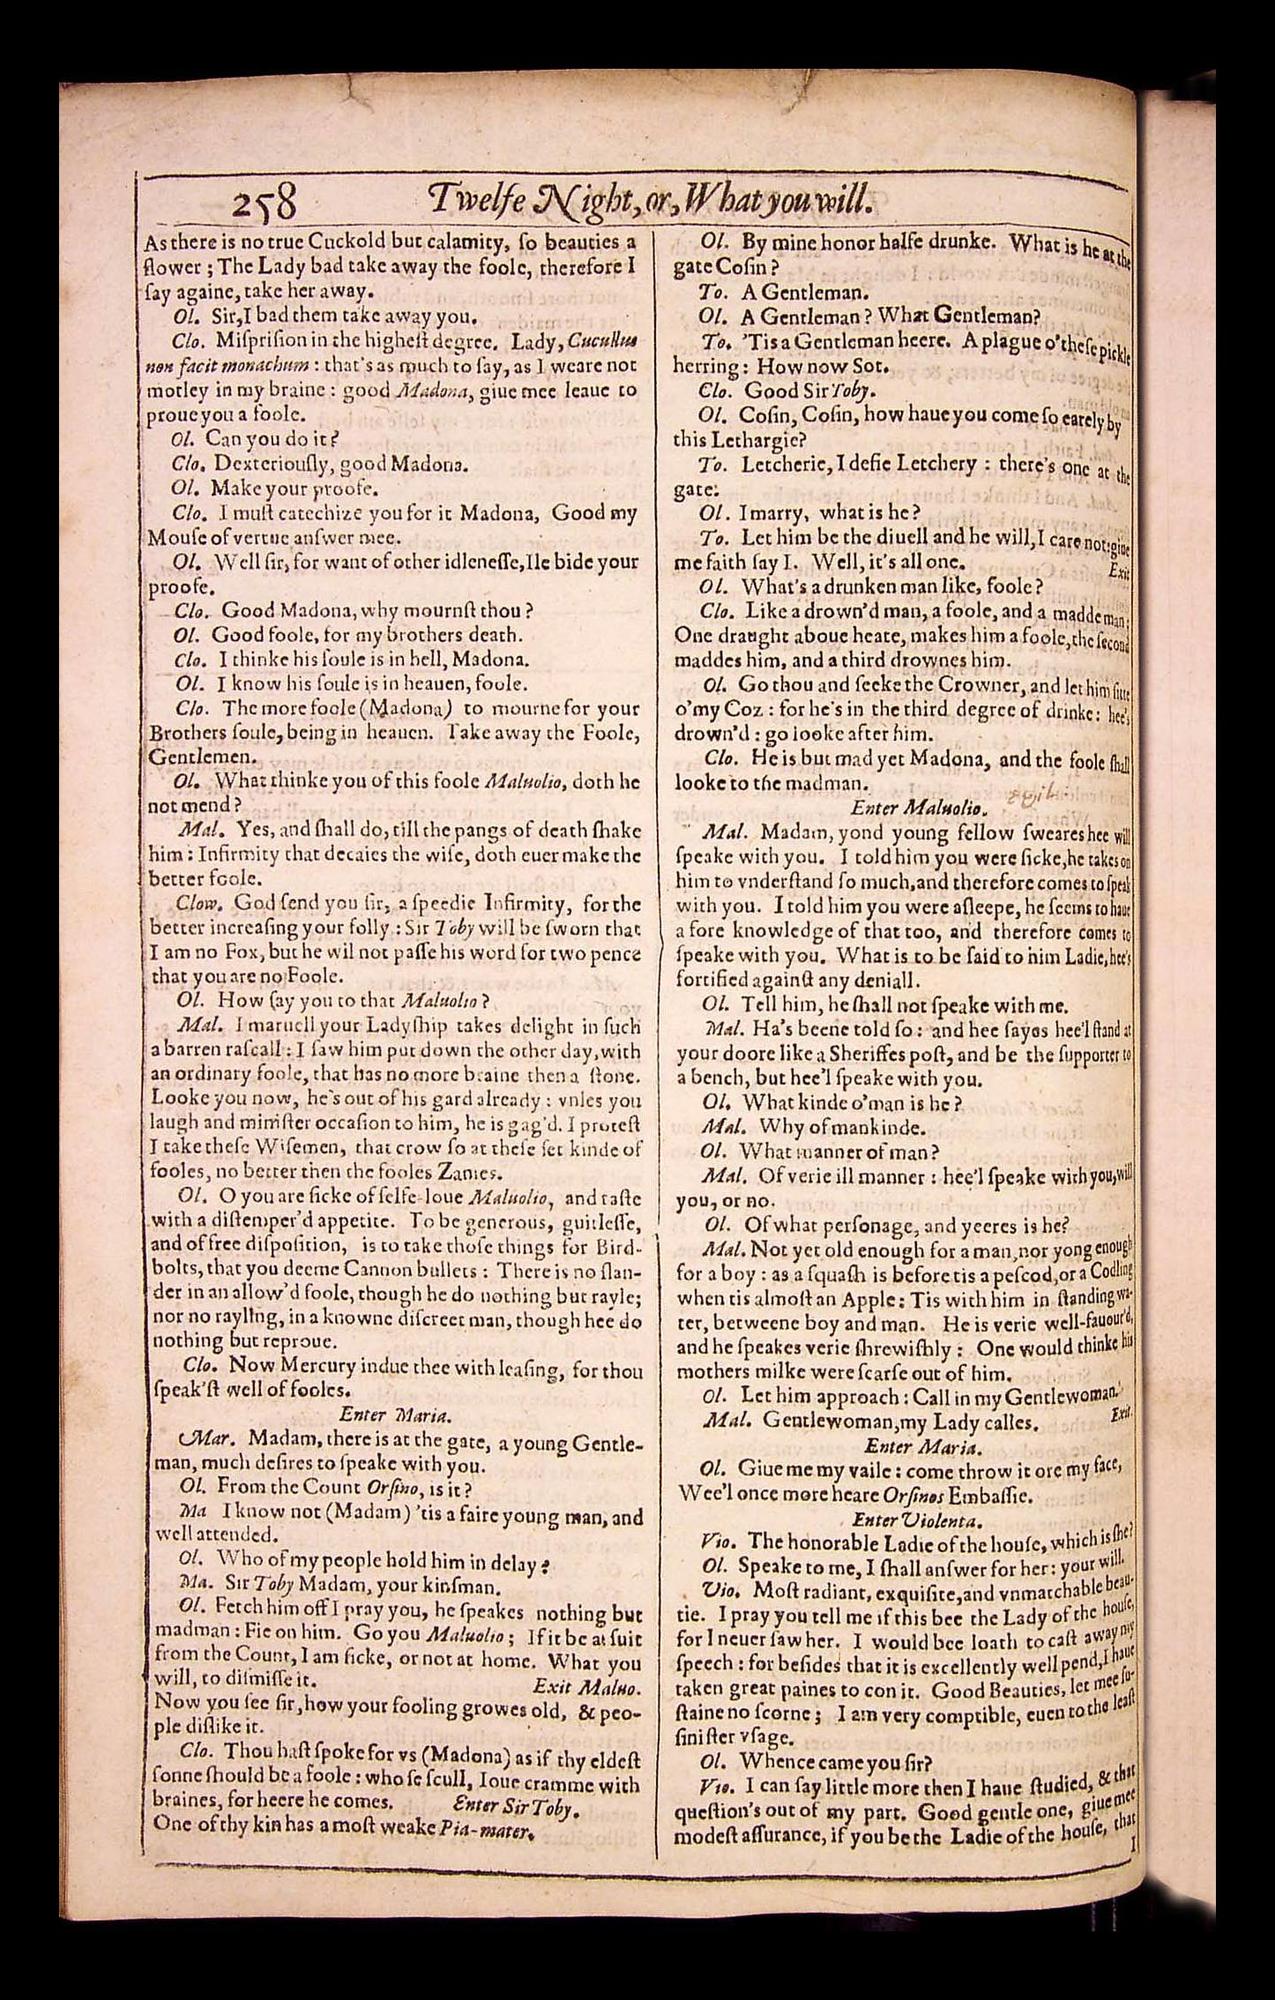 258 Twelfe Night, or, What you will.
As there is no true Cuckold but calamity, ſo beauties a
flower ; The Lady bad take away the foole, therefore I
ſay againe, take her away.
Ol. Sir, I bad them take away you.
Clo. Miſpriſion in the higheſt degree. Lady, Cucullus
non facit monachum : that's as much to ſay, as I weare not
motley in my braine : good Madona, giue mee leaue to
proue you a foole.
Ol. Can you do it?
Clo. Dexteriouſly, good Madona.
Ol. Make your proofe.
Clo. I muſt catechize you for it Madona, Good my
Mouſe of vertue anſwer mee.
Ol. Well ſir, for want of other idleneſſe, Ile bide your
proofe.
Clo. Good Madona, why mournſt thou ?
Ol. Good foole, for my brothers death.
Clo. I thinke his ſoule is in hell, Madona.
Ol. I know his ſoule is in heauen, foole.
Clo. The more foole (Madona) to mourne for your
Brothers ſoule, being in heauen. Take away the Foole,
Gentlemen.
Ol. What thinke you of this foole Maluolio, doth he
not mend ?
Mal. Yes, and ſhall do, till the pangs of death ſhake
him : Infirmity that decaies the wiſe, doth euer make the
better foole.
Clow. God ſend you ſir, a ſpeedie Infirmity, for the
better increaſing your folly : Sir Toby will be ſworn that
I am no Fox, but he wil not paſſe his word for two pence
that you are no Foole.
Ol. How ſay you to that Maluolio ?
Mal. I maruell your Ladyſhip takes delight in ſuch
a barren raſcall : I ſaw him put down the other day, with
an ordinary foole, that has no more braine then a ſtone.
Looke you now, he's out of his gard already : vnles you
laugh and miniſter occaſion to him, he is gag'd. I proteſt
I take theſe Wiſemen, that crow ſo at theſe ſet kinde of
fooles, no better then the fooles Zanies.
Ol. O you are ſicke of ſelfe-loue Maluolio, and taſte
with a diſtemper'd appetite. To be generous, guitleſſe,
and of free diſpoſition, is to take thoſe things for Bird-
bolts, that you deeme Cannon bullets : There is no ſlan-
der in an allow'd foole, though he do nothing but rayle;
nor no rayling, in a knowne diſcreet man, though hee do
nothing but reproue.
Clo. Now Mercury indue thee with leaſing, for thou
ſpeak'ſt well of fooles.
Enter Maria.
Mar. Madam, there is at the gate, a young Gentle-
man, much deſires to ſpeake with you.
Ol. From the Count Orſino, is it ?
Ma I know not (Madam) 'tis a faire young man, and
well attended.
Ol. Who of my people hold him in delay ?
Ma. Sir Toby Madam, your kinſman.
Ol. Fetch him off I pray you, he ſpeakes nothing but
madman : Fie on him. Go you Maluolio ; If it be a ſuit
from the Count, I am ſicke, or not at home. What you
will, to diſmiſſe it. Exit Maluo.
Now you ſee ſir, how your fooling growes old, & peo-
ple diſlike it.
Clo. Thou haſt ſpoke for vs (Madona) as if thy eldeſt
ſonne ſhould be a foole : who ſe ſcull, Ioue cramme with
braines, for heere he comes. Enter Sir Toby.
One of thy kin has a moſt weake Pia-mater.
Ol. By mine honor halfe drunke. What is he at the
gate Coſin ?
To. A Gentleman.
Ol. A Gentleman ? What Gentleman?
To. 'Tis a Gentleman heere. A plague o'theſe pickle
herring : How now Sot.
Clo. Good Sir Toby.
Ol. Coſin, Coſin, how haue you come ſo earely by
this Lethargie?
To. Letcherie, I defie Letchery : there's one at the
gate.
Ol. I marry, what is he ?
To. Let him be the diuell and he will, I care not: giue
me faith ſay I. Well, it's all one. Exit
Ol. What's a drunken man like, foole ?
Clo. Like a drown'd man, a foole, and a madde man :
One draught aboue heate, makes him a foole, the ſecond
maddes him, and a third drownes him.
Ol. Go thou and ſeeke the Crowner, and let him ſitte
o'my Coz : for he's in the third degree of drinke : hee's
drown'd : go looke after him.
Clo. He is but mad yet Madona, and the foole ſhall
looke to the madman.
Enter Maluolio.
Mal. Madam, yond young fellow ſweares hee will
ſpeake with you. I told him you were ſicke, he takes on
him to vnderſtand ſo much, and therefore comes to ſpeak
with you. I told him you were aſleepe, he ſeems to haue
a fore knowledge of that too, and therefore comes to
ſpeake with you. What is to be ſaid to him Ladie, hee's
fortified againſt any deniall.
Ol. Tell him, he ſhall not ſpeake with me.
Mal. Ha's beene told ſo : and hee ſayes hee'l ſtand at
your doore like a Sheriffes poſt, and be the ſupporter to
a bench, but hee'l ſpeake with you.
Ol. What kinde o'man is he ?
Mal. Why of mankinde.
Ol. What manner of man ?
Mal. Of verie ill manner : hee'l ſpeake with you, will
you, or no.
Ol. Of what perſonage, and yeeres is he?
Mal. Not yet old enough for a man, nor yong enough
for a boy : as a ſquaſh is before tis a peſcod, or a Codling
when tis almoſt an Apple : Tis with him in ſtanding wa-
ter, betweene boy and man. He is verie well-fauour'd,
and he ſpeakes verie ſhrewiſhly : One would thinke his
mothers milke were ſcarſe out of him.
Ol. Let him approach : Call in my Gentlewoman.
Mal. Gentlewoman, my Lady calles. Exit.
Enter Maria.
Ol. Giue me my vaile : come throw it ore my face,
Wee'l once more heare Orſinos Embaſſie.
Enter Violenta.
Vio. The honorable Ladie of the houſe, which is ſhe?
Ol. Speake to me, I ſhall anſwer for her : your will.
Vio. Moſt radiant, exquiſite, and vnmatchable beau-
tie. I pray you tell me if this bee the Lady of the houſe,
for I neuer ſaw her. I would bee loath to caſt away my
ſpeech : for beſides that it is excellently well pend, I haue
taken great paines to con it. Good Beauties, let mee ſu-
ſtaine no ſcorne ; I am very comptible, euen to the leaſt
ſiniſter vſage.
Ol. Whence came you ſir?
Vio. I can ſay little more then I haue ſtudied, & that
queſtion's out of my part. Good gentle one, giue mee
modeſt aſſurance, if you be the Ladie of the houſe, that
I